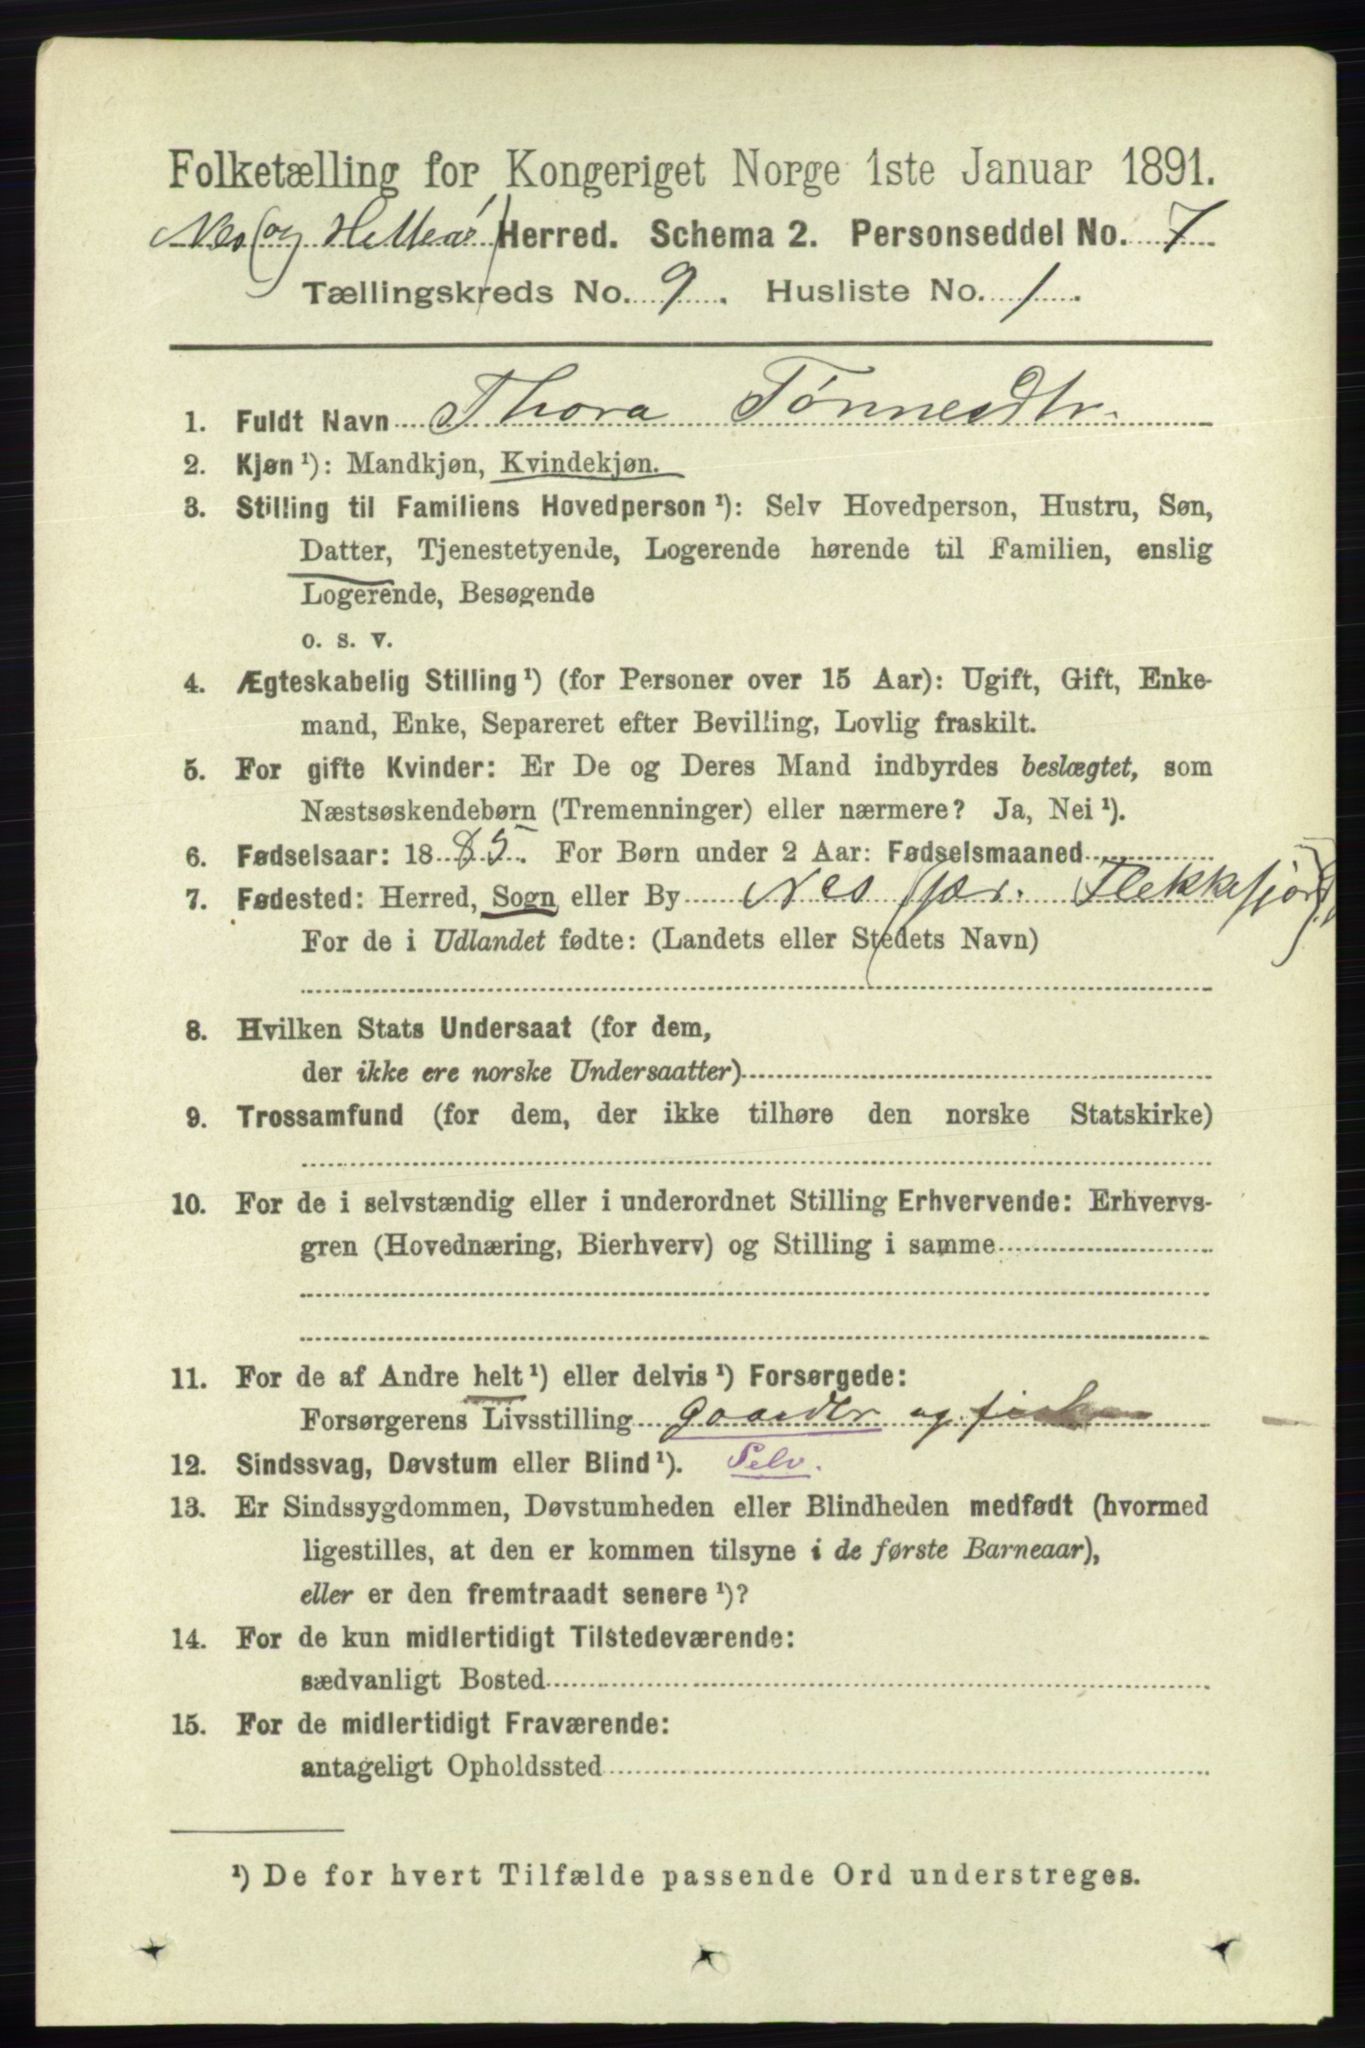 Folketælling for Kongeriget Norge 1ste Januar 1891.
Nes (og Hitterø) Herred. Schema 2. Personseddel No. 7
Tællingskreds No. 9. Husliste No. 1.
1. Fuldt Navn Thora Tønnesdtr.
2. Kjøn ¹): Mandkjøn, Kvindekjøn.
3. Stilling til Familiens Hovedperson ¹): Selv Hovedperson, Hustru, Søn,
Datter, Tjenestetyende, Logerende hørende til Familien, enslig
Logerende, Besøgende
o. s. v.
4. Ægteskabelig Stilling ¹) (for Personer over 15 Aar): Ugift, Gift, Enke-
mand, Enke, Separeret efter Bevilling, Lovlig fraskilt.
5. For gifte Kvinder: Er De og Deres Mand indbyrdes beslægtet, som
Næstsøskendebørn (Tremenninger) eller nærmere? Ja, Nei ¹).
6. Fødselsaar: 1885. For Børn under 2 Aar: Fødselsmaaned
7. Fødested: Herred, Sogn eller By Nes (pr. Flekkefjord)
For de i Udlandet fødte: (Landets eller Stedets Navn)
8. Hvilken Stats Undersaat (for dem,
der ikke ere norske Undersaatter)
9. Trossamfund (for dem, der ikke tilhøre den norske Statskirke)
10. For de i selvstændig eller i underordnet Stilling Erhvervende: Erhvervs-
gren (Hovednæring, Bierhverv) og Stilling i samme
11. For de af Andre helt ¹) eller delvis ¹) Forsørgede:
Forsørgerens Livsstilling gaardbr og
12. Sindssvag, Døvstum eller Blind ¹). Selv.
13. Er Sindssygdommen, Døvstumheden eller Blindheden medfødt (hvormed
ligestilles, at den er kommen tilsyne i de første Barneaar),
eller er den fremtraadt senere ¹)?
14. For de kun midlertidigt Tilstedeværende:
sædvanligt Bosted
15. For de midlertidigt Fraværende:
antageligt Opholdssted
¹) De for hvert Tilfælde passende Ord understreges.